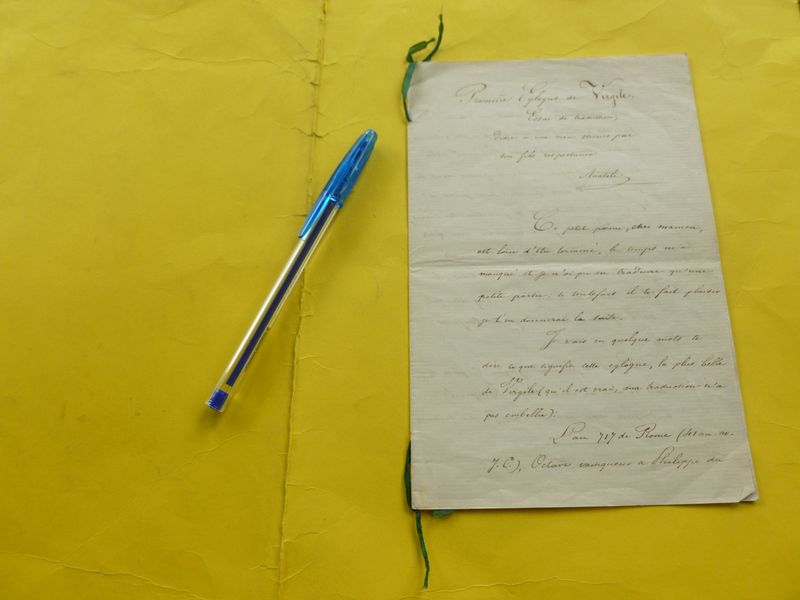 Première Eglogue de Virgile.
Essai de traduction,
Dédié à ma mère par
son fils respectueux
Anatole
Ce petit poème, chère maman,
est loin d'être terminé, le temps m'a
manqué et je n'ai pu en traduire qu'une
petite partie; si toutefois il te fait plaisir
je t'en donnerai la suite.
Je vais en quelque mots te
dire ce que signifie cette eglogue, la plus belle
de Virgile (qu'il est vrai, ma traduction n'a
pas embellie):
L'an 717 de Rome (
J. C.), Octave vainqueur à Philippe du